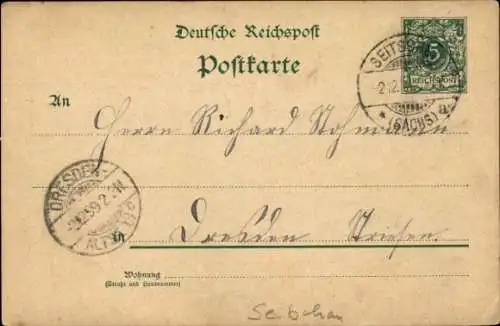 Deutsche Reichspost
Postkarte
5
REICHSPOST
SEITSCHEN
(SACHS)
An
Herrn Richard Hohmann
DRESDEN
ALTST.
in
Dresden Striesen
Wohnung
(Straße und Hausnummer)
Seitschen